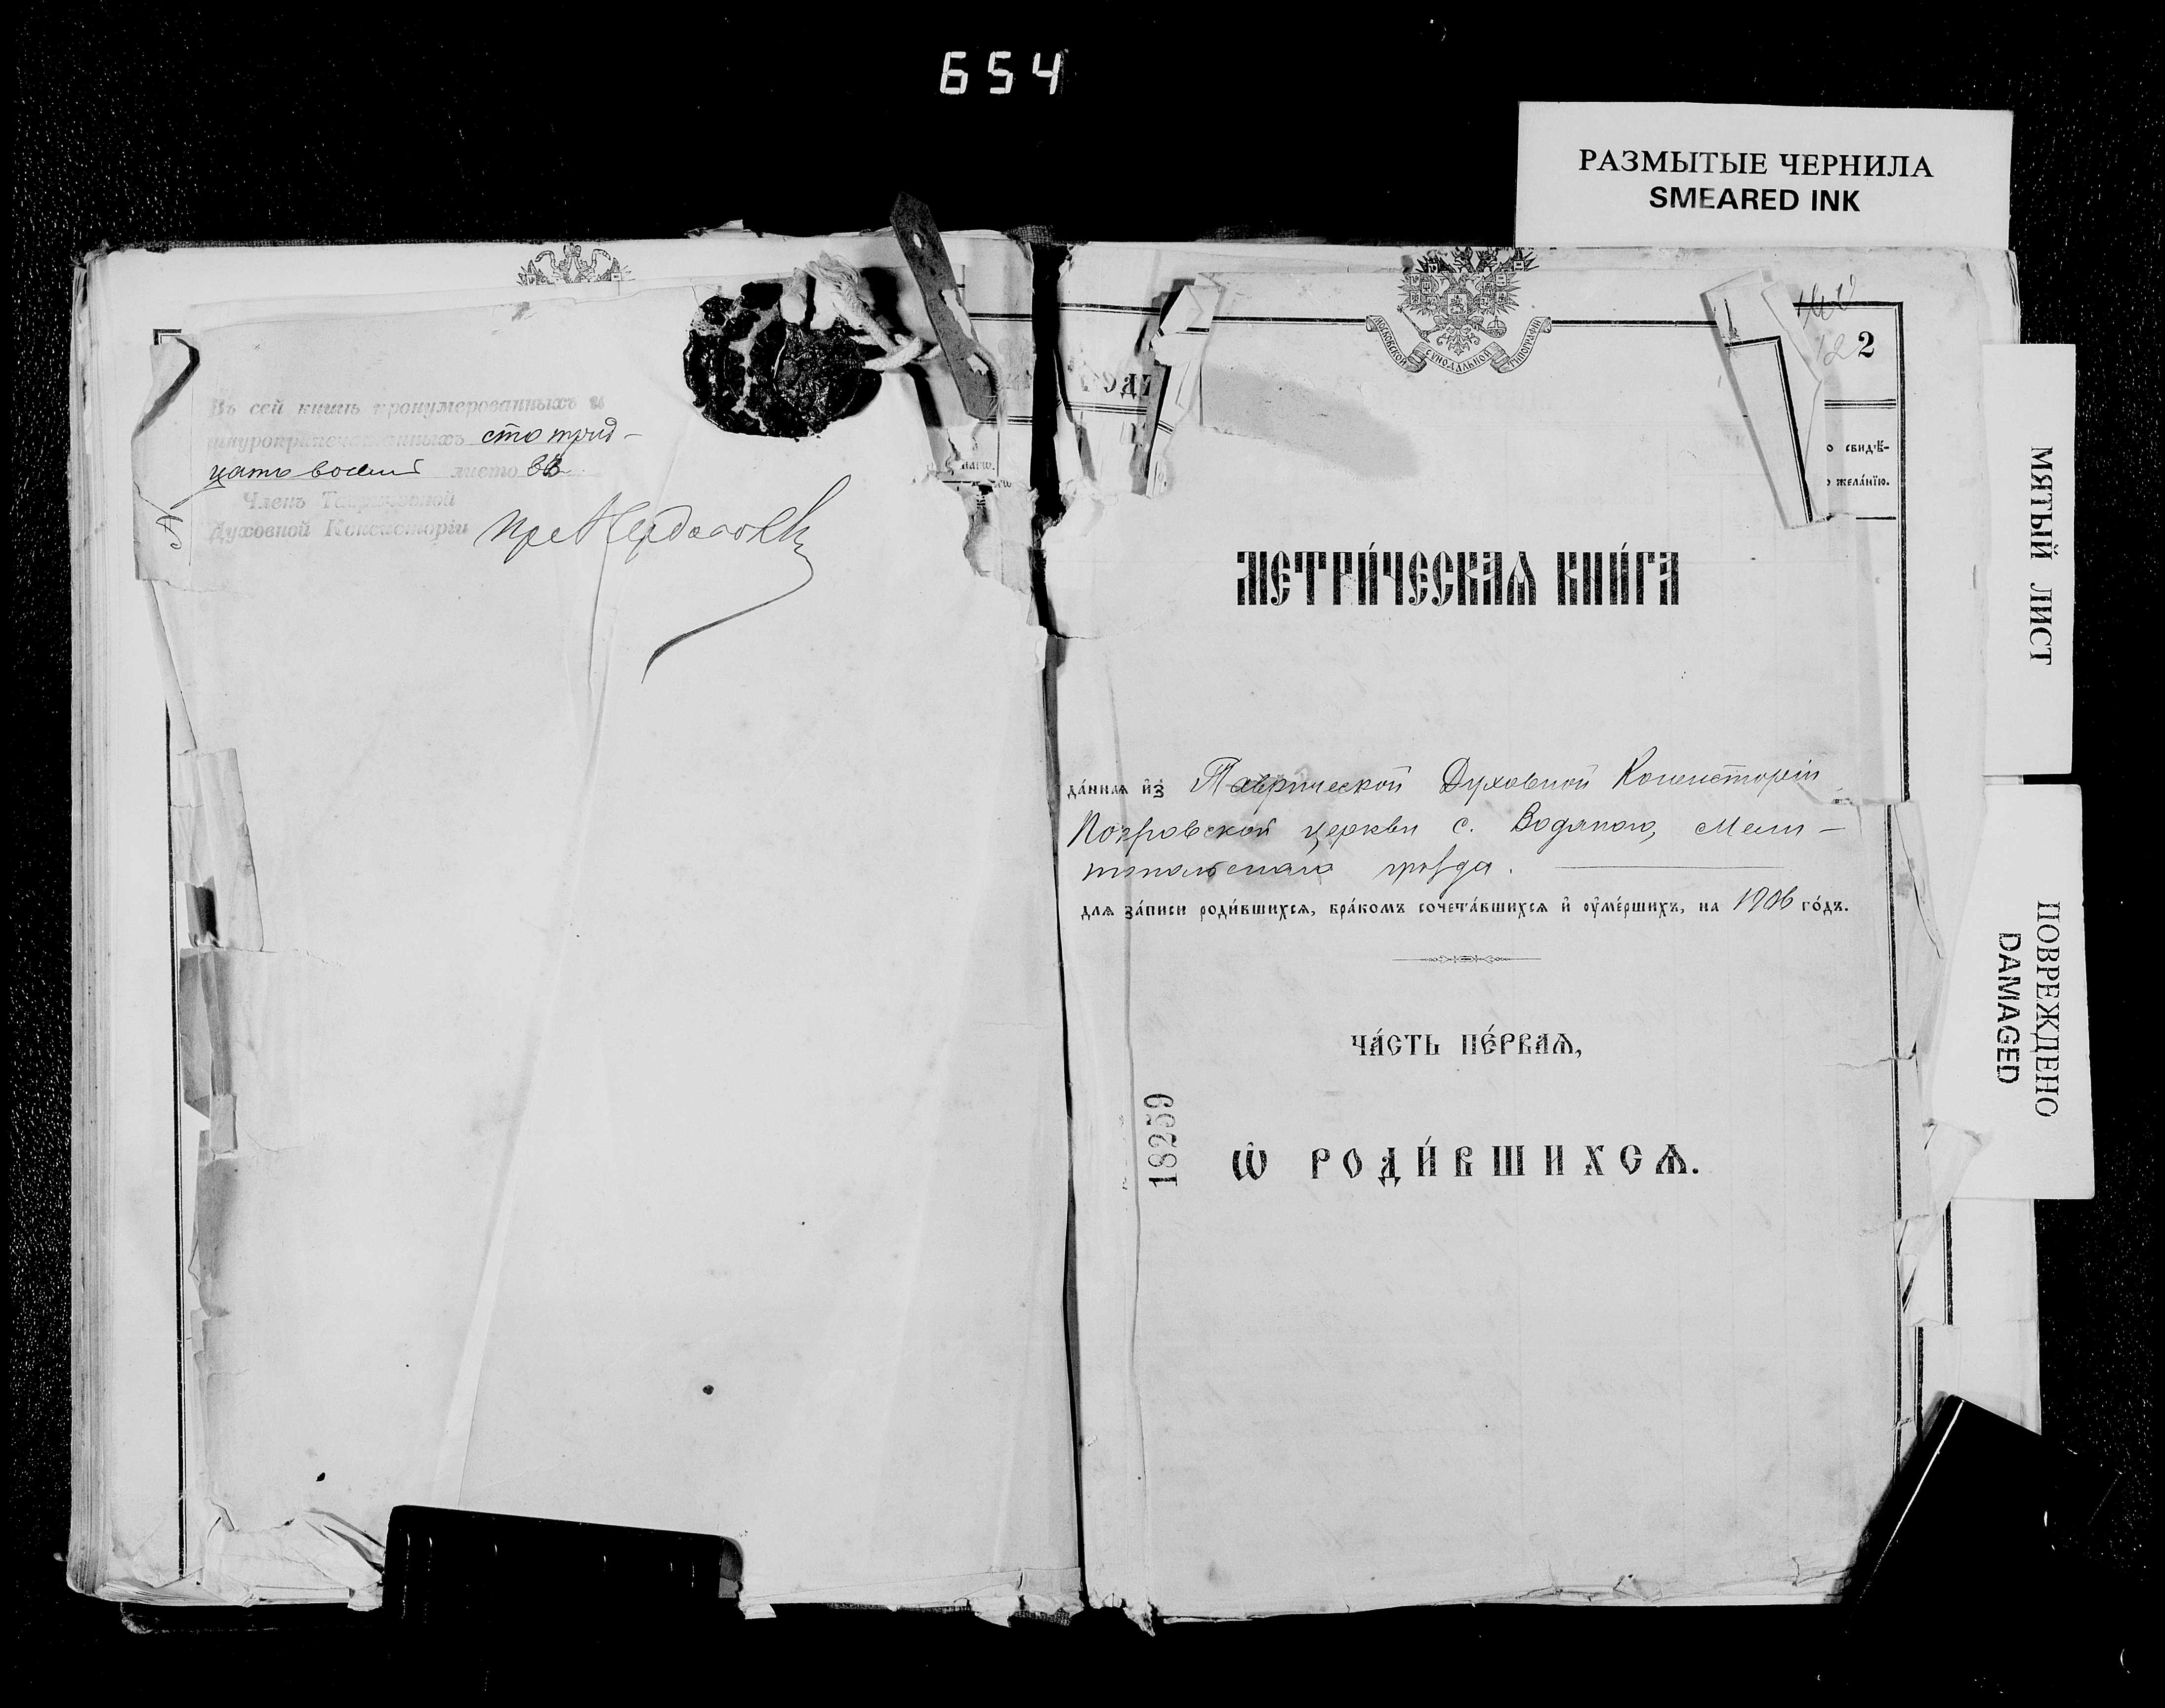 654
РАЗМЫТЫЕ ЧЕРНИЛА
SMEARED INK
Въ сей книгѣ пронумерованныхъ и
шнуроприпечатанныхъ сто трид-
цать восемь листовъ
Членъ Таврической
Духовной Консисторіи
МОСКОВСКОЙ СѴНОДАЛЬНОЙ ТИПОГРАФІИ
2
ѡ свидѣ-
жела́нїю.
МЕТРИ́ЧЕСКАѦ КНИ́ГА
да́ннаѧ и҆з̾ Таврической Духовной Консисторіи
Покровской церкви с. Водяного, Мели-
топольскаго уѣзда.
длѧ за́писи роди́вшихсѧ, бра́комъ сочета́вшихсѧ и҆ ᲂу҆ме́ршихъ, на 1906 го́дъ.
ЧА́СТЬ ПЕ́РВАѦ,
Ѡ҆ РОДИ́ВШИХСѦ.
18259
МЯТЫЙ ЛИСТ
ПОВРЕЖДЕНО
DAMAGED